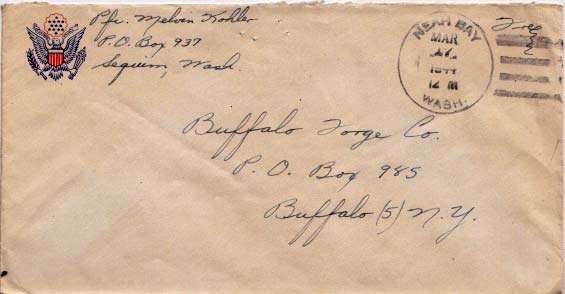 Pfc. Melvin Kohler
P.O. Box 937
Sequim, Wash.
NEAH BAY
MAR
17
1944
12 M
WASH.
Free
Buffalo Forge Co.
P. O. Box 985
Buffalo (5) N.Y.